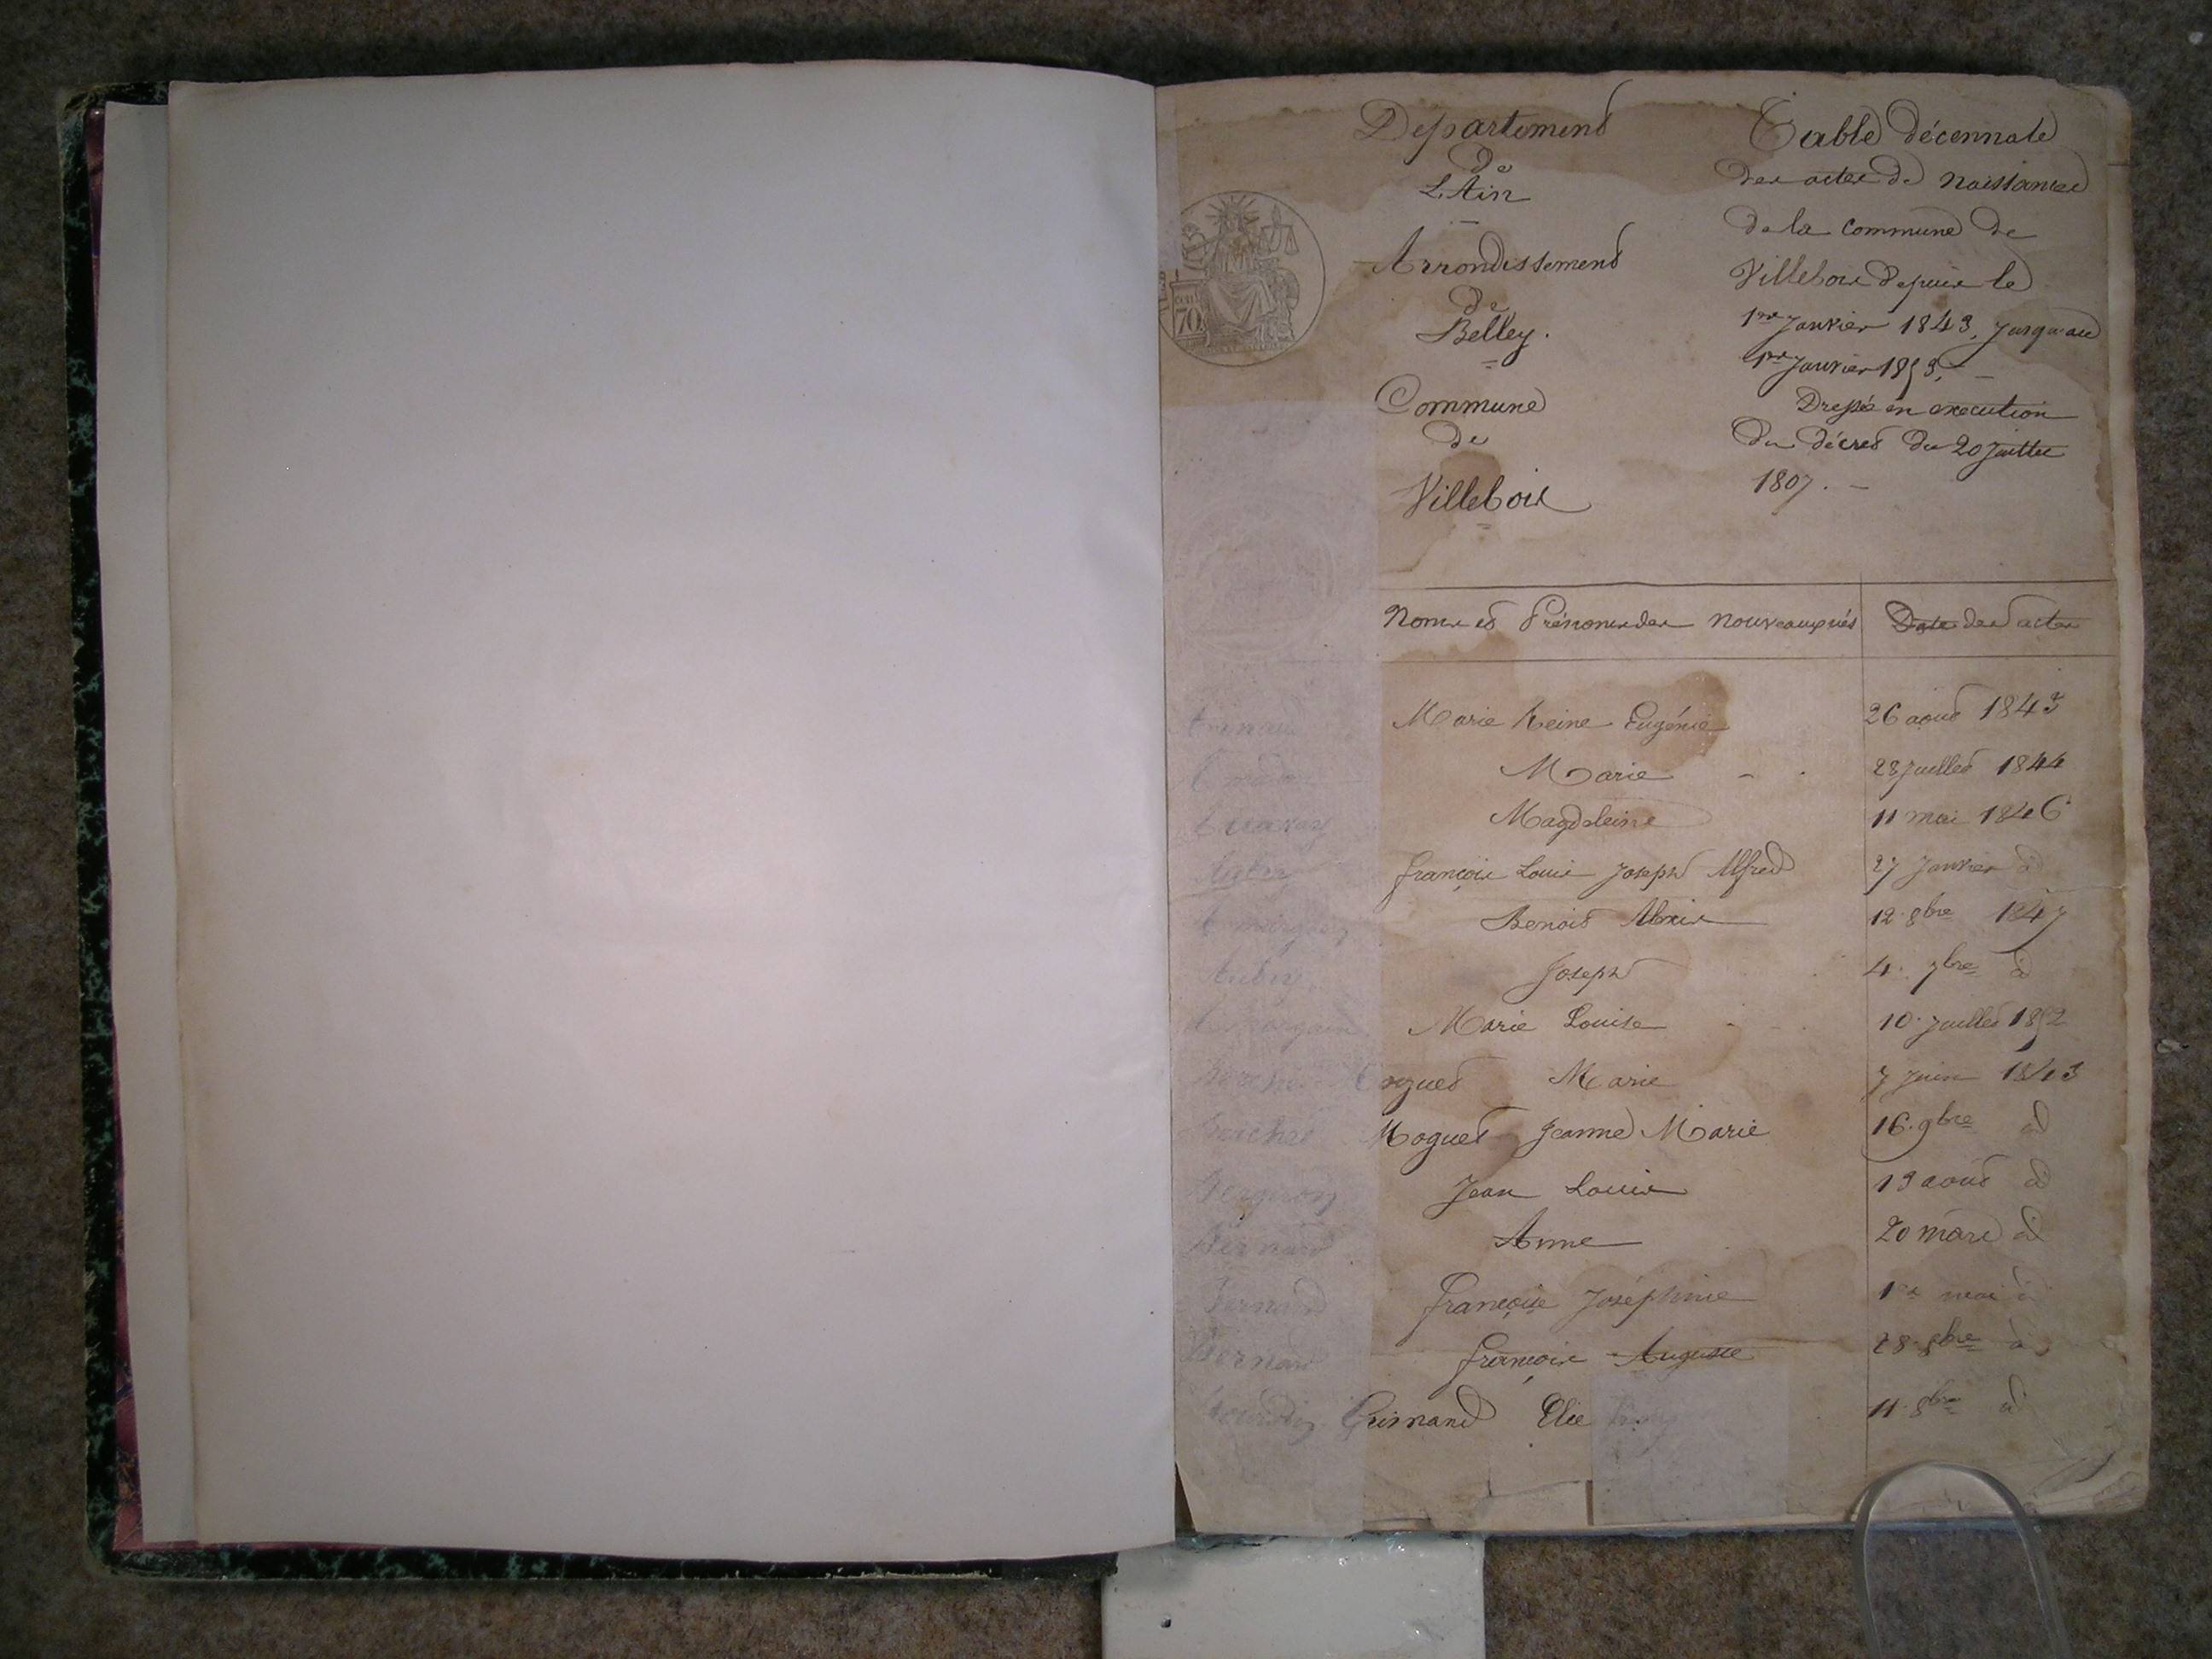 Département
de
L'Ain
Arrondissement
de
Belley.
Commune
de
Villebois
Table décennale
des actes de Naissances
de la Commune de
Villebois depuis le
1er Janvier 1843, Jusqu'au
1er Janvier 1853,
Dressée en execution
du décret du 20 Juillet
1807.
70
Noms et Prénoms des Nouveaux nés Date des actes
Marie Reine Eugénie 26 aout 1843
Marie 28 Juillet 1844
Magdeleine 11 mai 1846
François Louis Joseph Alfred 27 Janvier d
Benoit Alexis 12 8bre 1847
Aubry Joseph 4 7bre d
Marie Louise 10 Juillet 1852
Marie 7 Juin 1843
Moguet Jeanne Marie 16 9bre d
Jean Louis 19 aout d
Bernard Anne 20 mars d
Bernard Françoise Joséphine 1er mai d
Bernard François Auguste 28 8bre d
Grisnand Elie 11 8bre d